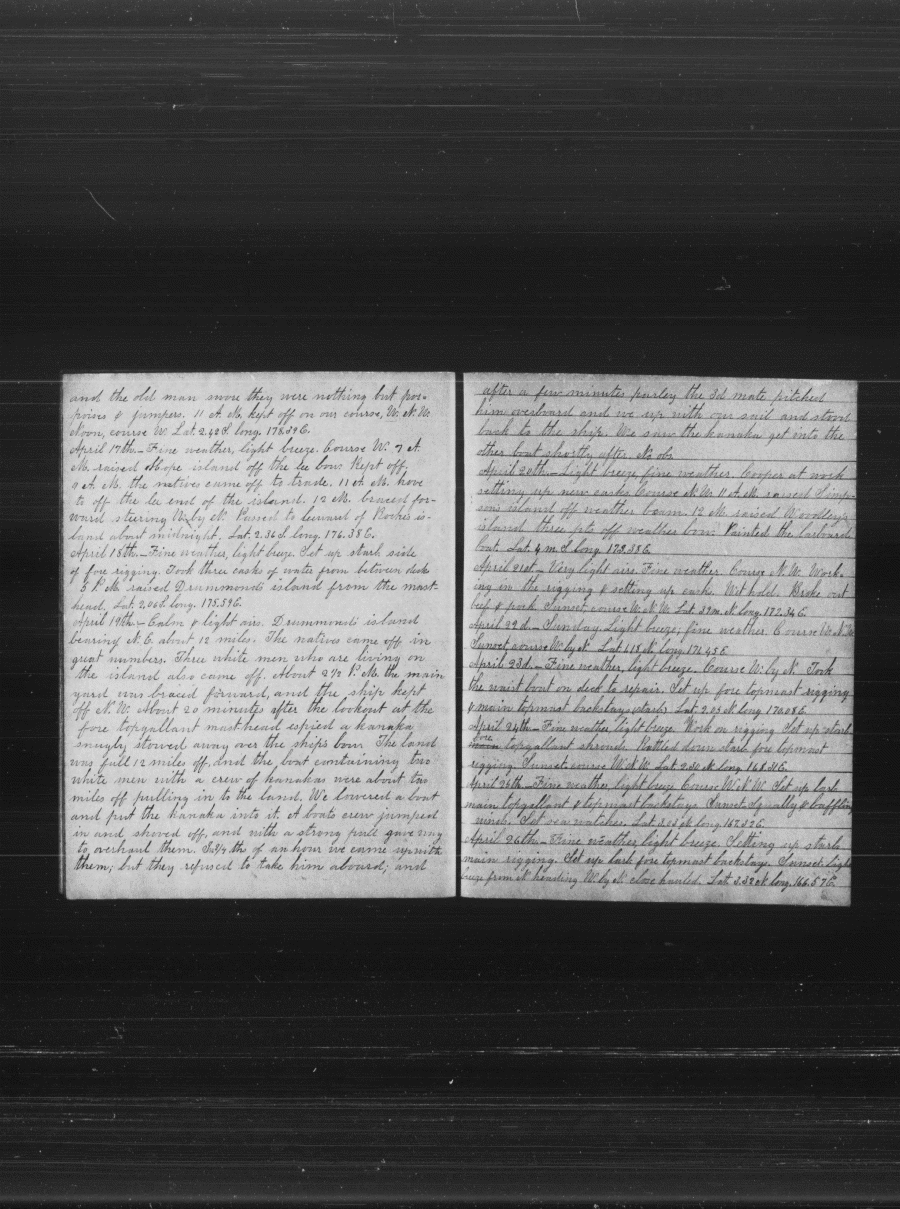 and the old man swore they were nothing but por-
poises & jumpers. 11 A.M. kept off on our course, W.N.W.
Noon, course W. Lat. 2.42 S. long. 178.39 E.
April 17th.— Fine weather, light breeze. Course W. 7 A.
M. raised Hope island off the lee bow. Kept off.
9 A.M. the natives came off to trade. 11 A.M. hove
to off the lee end of the island. 12 M. braced for-
ward steering W. by N. Passed to leeward of Roches is-
land about midnight. Lat. 2.36 S. long. 176.38 E.
April 18th.— Fine weather, light breeze. Set up starb side
of fore rigging. Took three casks of water from between decks
5 P.M. raised Drummonds island from the mast-
head. Lat. 2.06 S. long. 175.59 E.
April 19th.— Calm & light airs. Drummonds island
bearing N.E. about 12 miles. The natives came off in
great numbers. Three white men who are living on
the island also came off. About 2 1/2 P.M. the main
yard was braced forward, and the ship kept
off N.W. About 20 minutes after the lookout at the
fore topgallant masthead espied a kanaka
snugly stowed away over the ship's bow. The land
was full 12 miles off, and the boat containing two
white men with a crew of kanakas were about two
miles off pulling in to the land. We lowered a boat
and put the kanaka into it. A boats crew jumped
in and shoved off, and with a strong pull gave way
to overhaul them. In 3/4 ths of an hour we came up with
them; but they refused to take him aboard; and
after a few minutes parley the 3d mate pitched
him overboard and we up with our sail and stood
back to the ship. We saw the kanaka get into the
other boat shortly after. No obs
April 20th.— Light breeze, fine weather. Cooper at work
setting up new casks. Course N.W. 11 A.M. raised Simp-
sons island off weather beam. 12 M. raised Woodleys
island three pts off weather bow. Painted the larboard
boat. Lat. 4 m S. long 173.38 E.
April 21st.— Very light airs. Fine weather. Course N.W. Work-
ing in the rigging & setting up cask. Wet hold. Broke out
beef & pork. Sunset course W.N.W. Lat. 39 m. N. long. 172.34 E.
April 22d.— Sunday. Light breeze, fine weather. Course W.N.W.
Sunset course W. by N. Lat. 1.18 N. long. 171.45 E.
April 23d.— Fine weather, light breeze. Course W. by N. Took
the waist boat on deck to repair. Set up fore topmast rigging
& main topmast backstays starb. Lat. 2.05 N. long. 170.08 E.
April 24th— Fine weather light breeze. Work on rigging. Set up starb
fore
main topgallant shrouds. Rattled down starb fore topmast
rigging. Sunset course W.N.W. Lat. 2.50 N. long. 168.51 E.
April 25th.— Fine weather, light breeze. Course W.N.W. Set up larb
main topgallant & topmast backstays. Sunset Squally & baffling
winds. Set sea watches. Lat. long. 167.52 E.
April 26th.— Fine weather, light breeze. Setting up starb
main rigging. Set up larb fore topmast backstays. Sunset light
breeze from N. heading W. by N. close hauled. Lat. 3.32 N. long. 166.57 E.